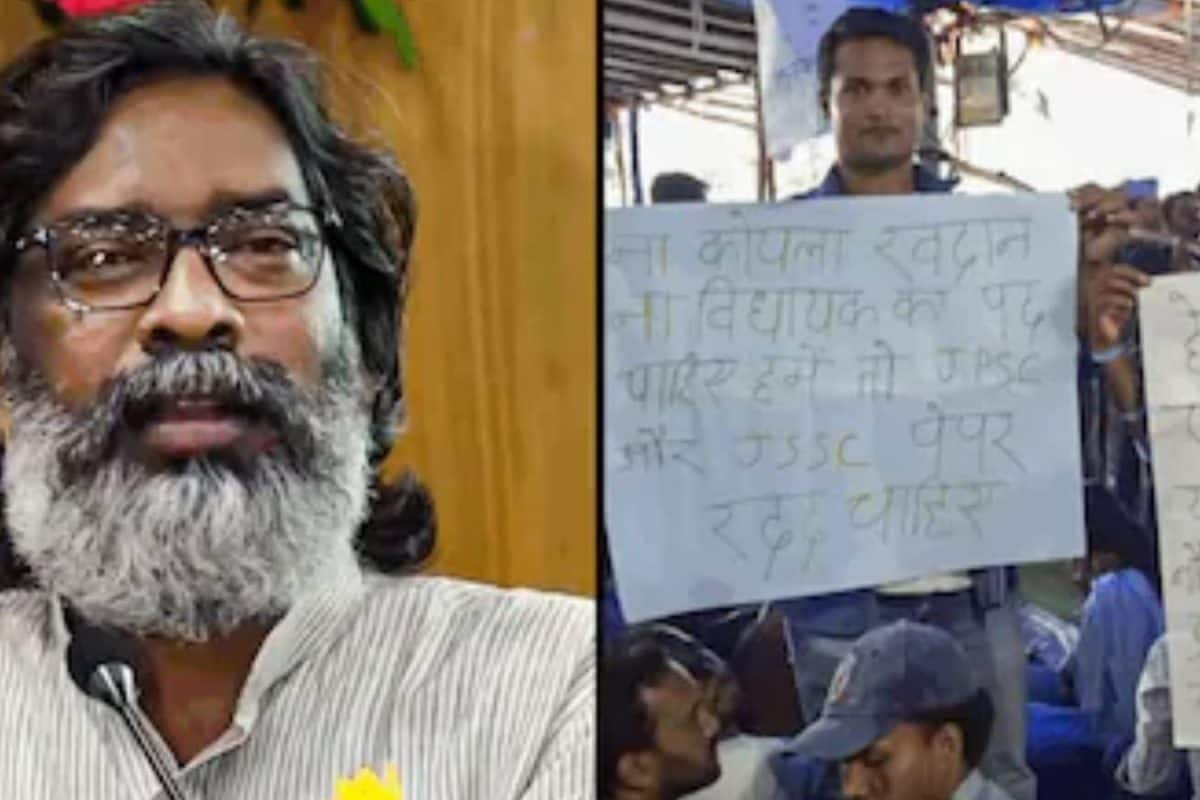 ना कोयला खदान
ना विधायक का पद
चाहिए हमें तो JPSC
और JSSC पेपर
रद्द चाहिए